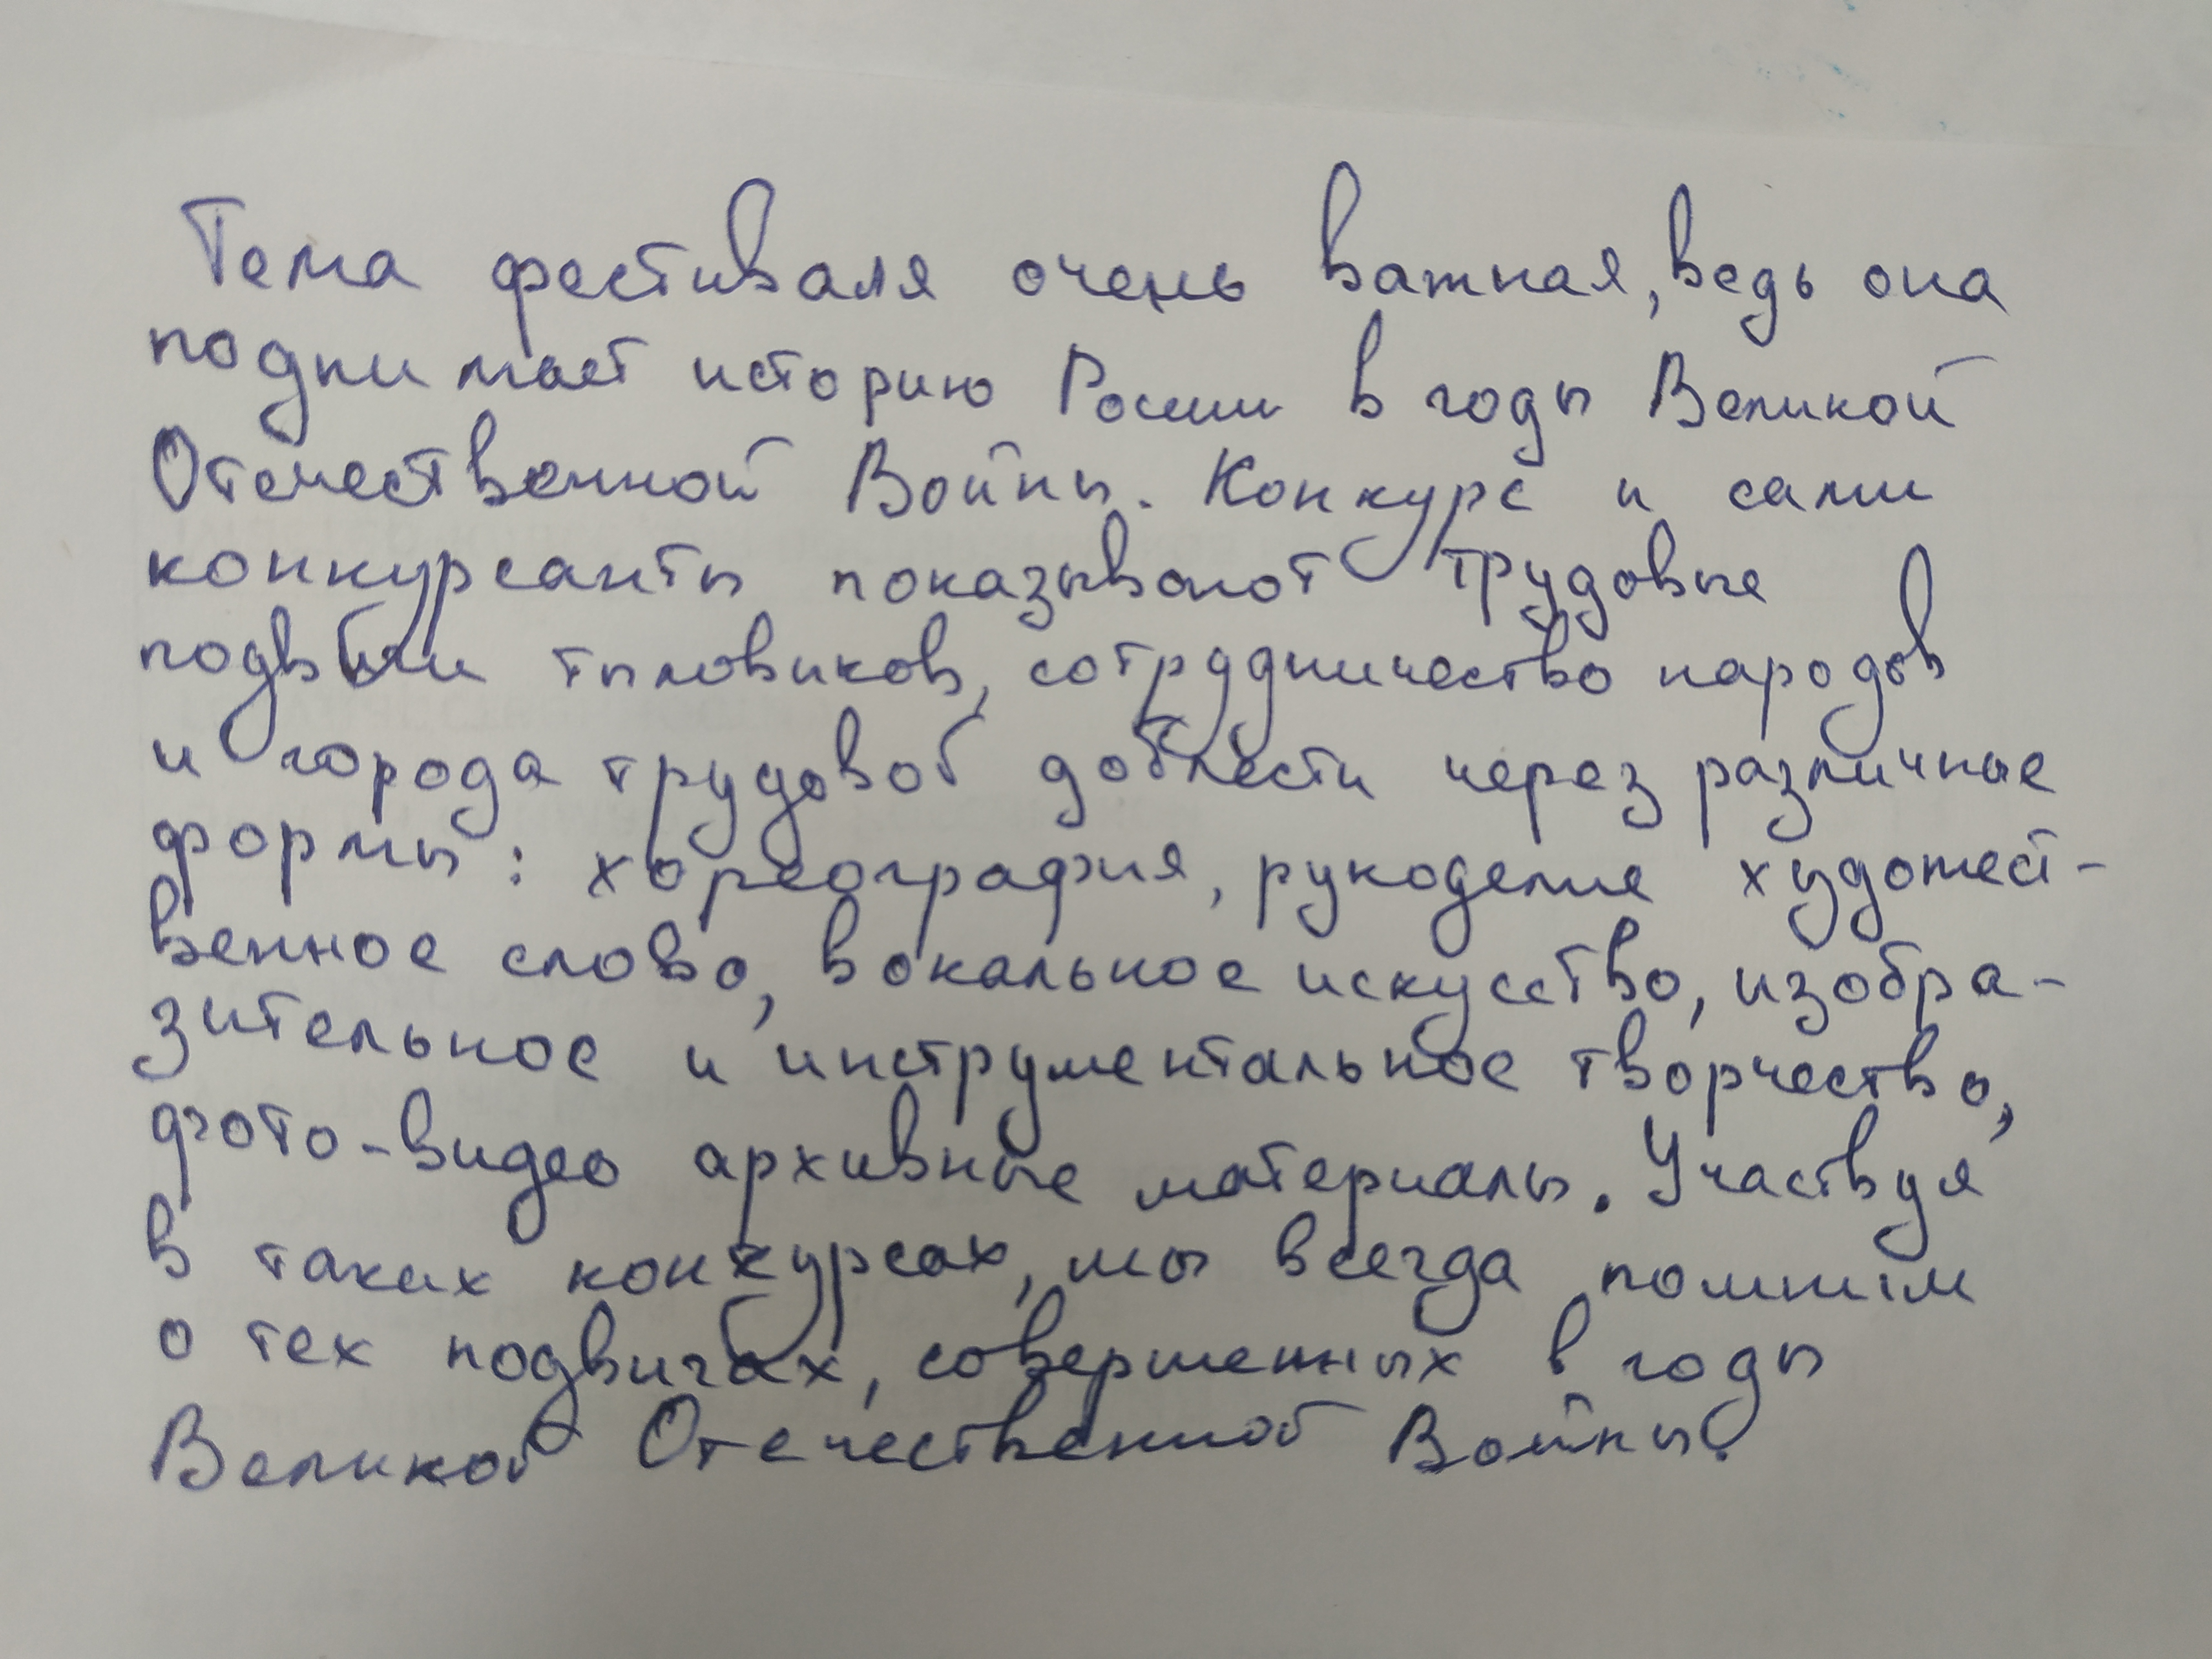 Тема фестиваля очень важная, ведь она
поднимает историю России в годы Великой
Отечественной Войны. Конкурс и сами
конкурсанты показывают трудовые
подвиги тыловиков, сотрудничество народов
и города трудовой доблести через различные
формы: хореография, рукоделие художест-
венное слово, вокальное искусство, изобра-
зительное и инструментальное творчество,
фото-видео архивные материалы. Участвуя
в таких конкурсах, мы всегда помним
о тех подвигах, совершенных в годы
Великой Отечественной Войны.